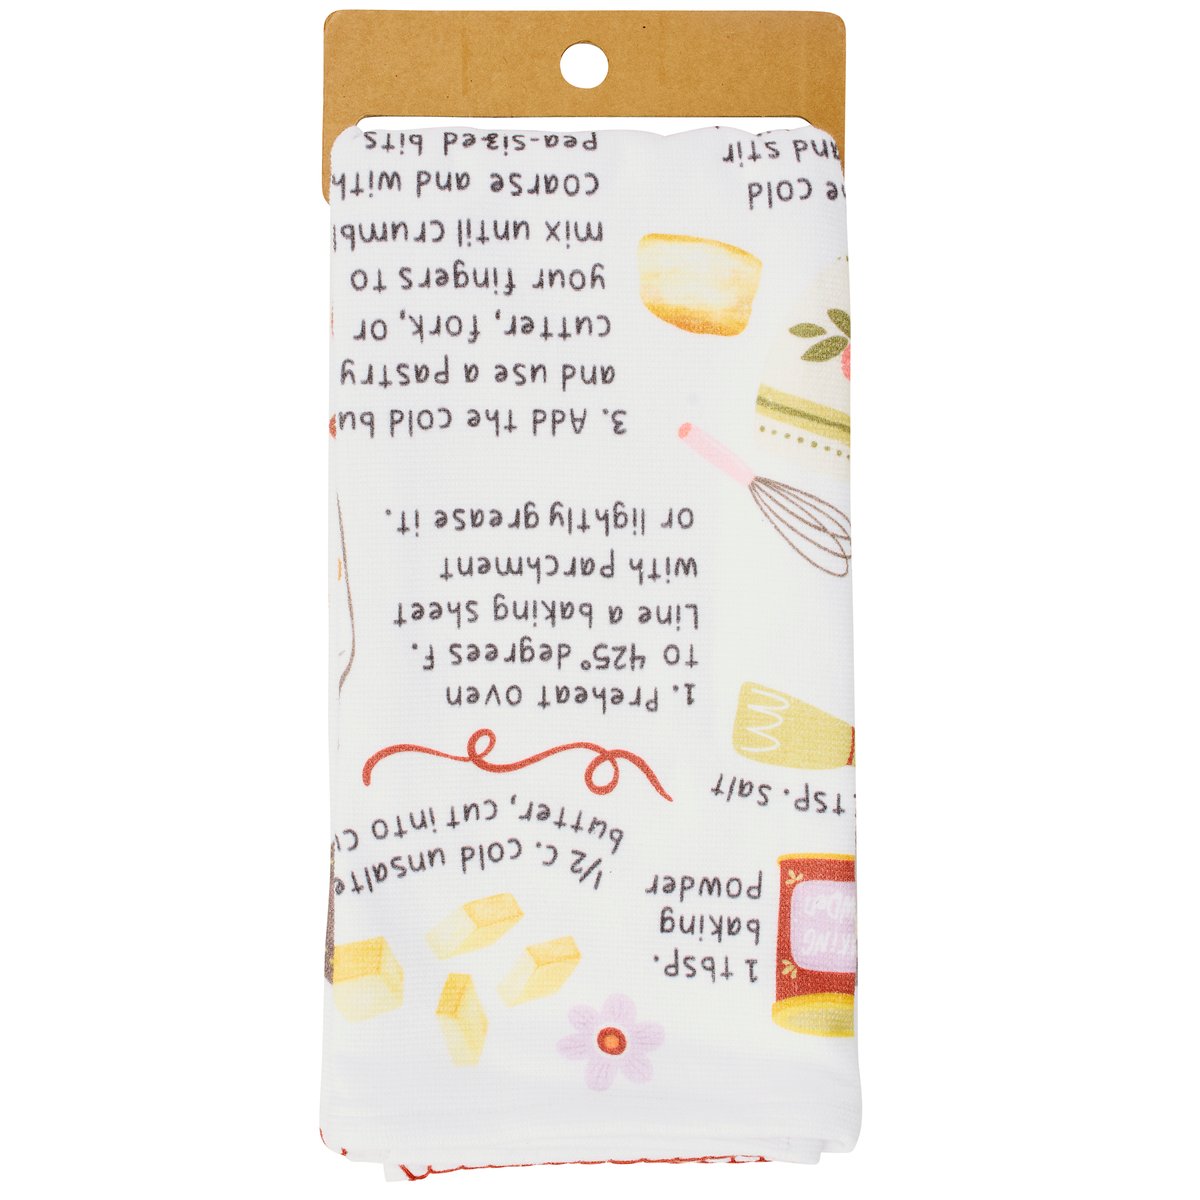 1 tbsp.
baking
powder
1/2 c. cold unsalte
butter, cut into cu
tsp. salt
1. Preheat oven
to 425° degrees F.
Line a baking sheet
with parchment
or lightly grease it.
3. Add the cold bu
and use a pastry
cutter, fork, or
your fingers to
mix until crumbl
coarse and with
pea-sized bits
he cold
and stir